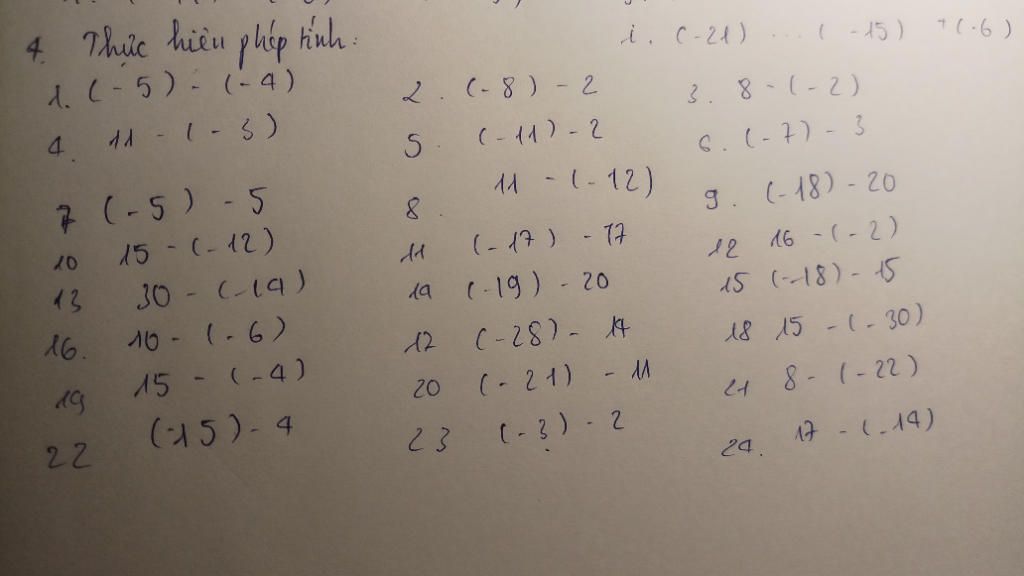 i. (-21) ... ( -15) +(-6)
4. Thực hiện phép tính:
1. (-5) - (-4) 2. (-8) - 2 3. 8 - (-2)
4. 11 - (-3) 5. (-11) - 2 6. (-7) - 3
7 (-5) - 5 8. 11 - (-12) 9. (-18) - 20
10 15 - (-12) 11 (-17) - 17 12 16 - (-2)
13 30 - (-14) 14 (-19) - 20 15 (-18) - 15
16. 10 - (-6) 17 (-28) - 14 18 15 - (-30)
19 15 - (-4) 20 (-21) - 11 21 8 - (-22)
22 (-15) - 4 23 (-3) - 2 24. 17 - (-14)